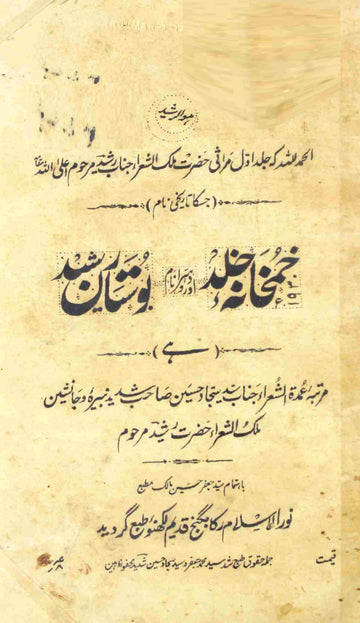 هوالرشید
الحمد للہ کہ جلد اول مراثی حضرت ملک الشعراء جناب رشید مرحوم اعلی اللہ مقامہ
(جسکا تاریخی نام)
خمخانۂ خلد اور دوسرا نام بوستان رشید
۱۹۳۰ء
(ہے)
مرتبہ عمدۃ الشعراء جناب سید سجاد حسین صاحب شدید نبیرہ و جانشین
ملک الشعراء حضرت رشید مرحوم
باہتمام سید جعفر حسین مالک مطبع
نور الاسلام رکابگنج قدیم لکھنؤ طبع گردید
قیمت جملہ حقوق طبع شد سید محمد جعفر و سید سجاد حسین شدید محفوظ ہیں